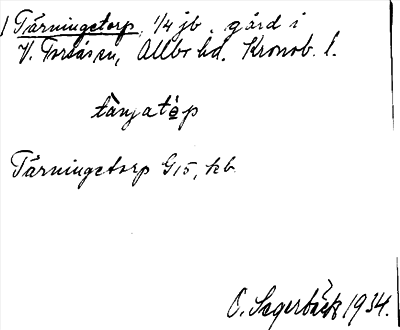 1 Tärningetorp, 1/4 jb. gård i
V. Torsås sn, Allbo hd. Kronob. l.
tä̀ŋatɵ́p
Tärningetorp G15, kb.
O. Lagerbäck 1934.